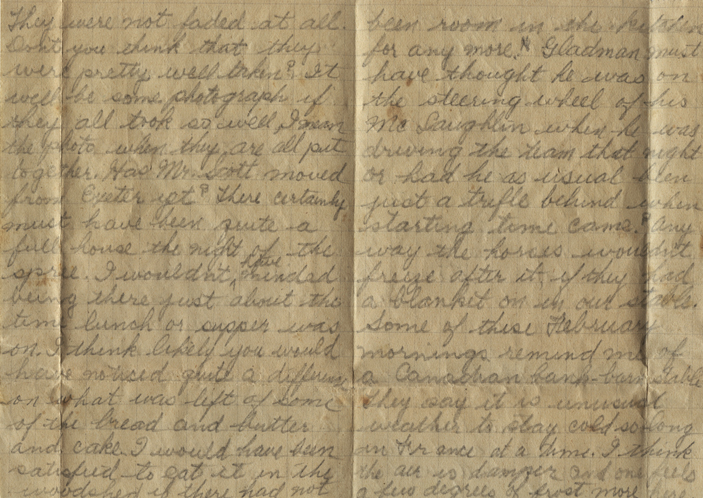 They were not faded at all.
Don't you think that they
were pretty well taken? It
will be some photograph if
they all took so well, I mean
the photo when they are all put
together. Has Mr. Scott moved
from Exeter yet? There certainly
must have been quite a
full house the night of the
spree. I wouldn't have minded
being there just about the
time lunch or supper was
on. I think likely you would
have noticed quite a difference
on what was left of some
of the bread and butter
and cake. I would have been
satisfied to eat it in the
woodshed if there had not
been room in the kitchen
for any more. Gladman must
have thought he was on
the steering wheel of his
McLaughlin when he was
driving the team that night
or had he as usual been
just a trifle behind when
starting time came? Any
way the horses wouldn't
freeze after it if they had
a blanket on in our stable.
Some of these February
mornings remind me of
a Canadian bank-barn stable
They say it is unusual
weather to stay cold so long
in France at a time. I think
the air is damper and one feels
a few degrees of frost more